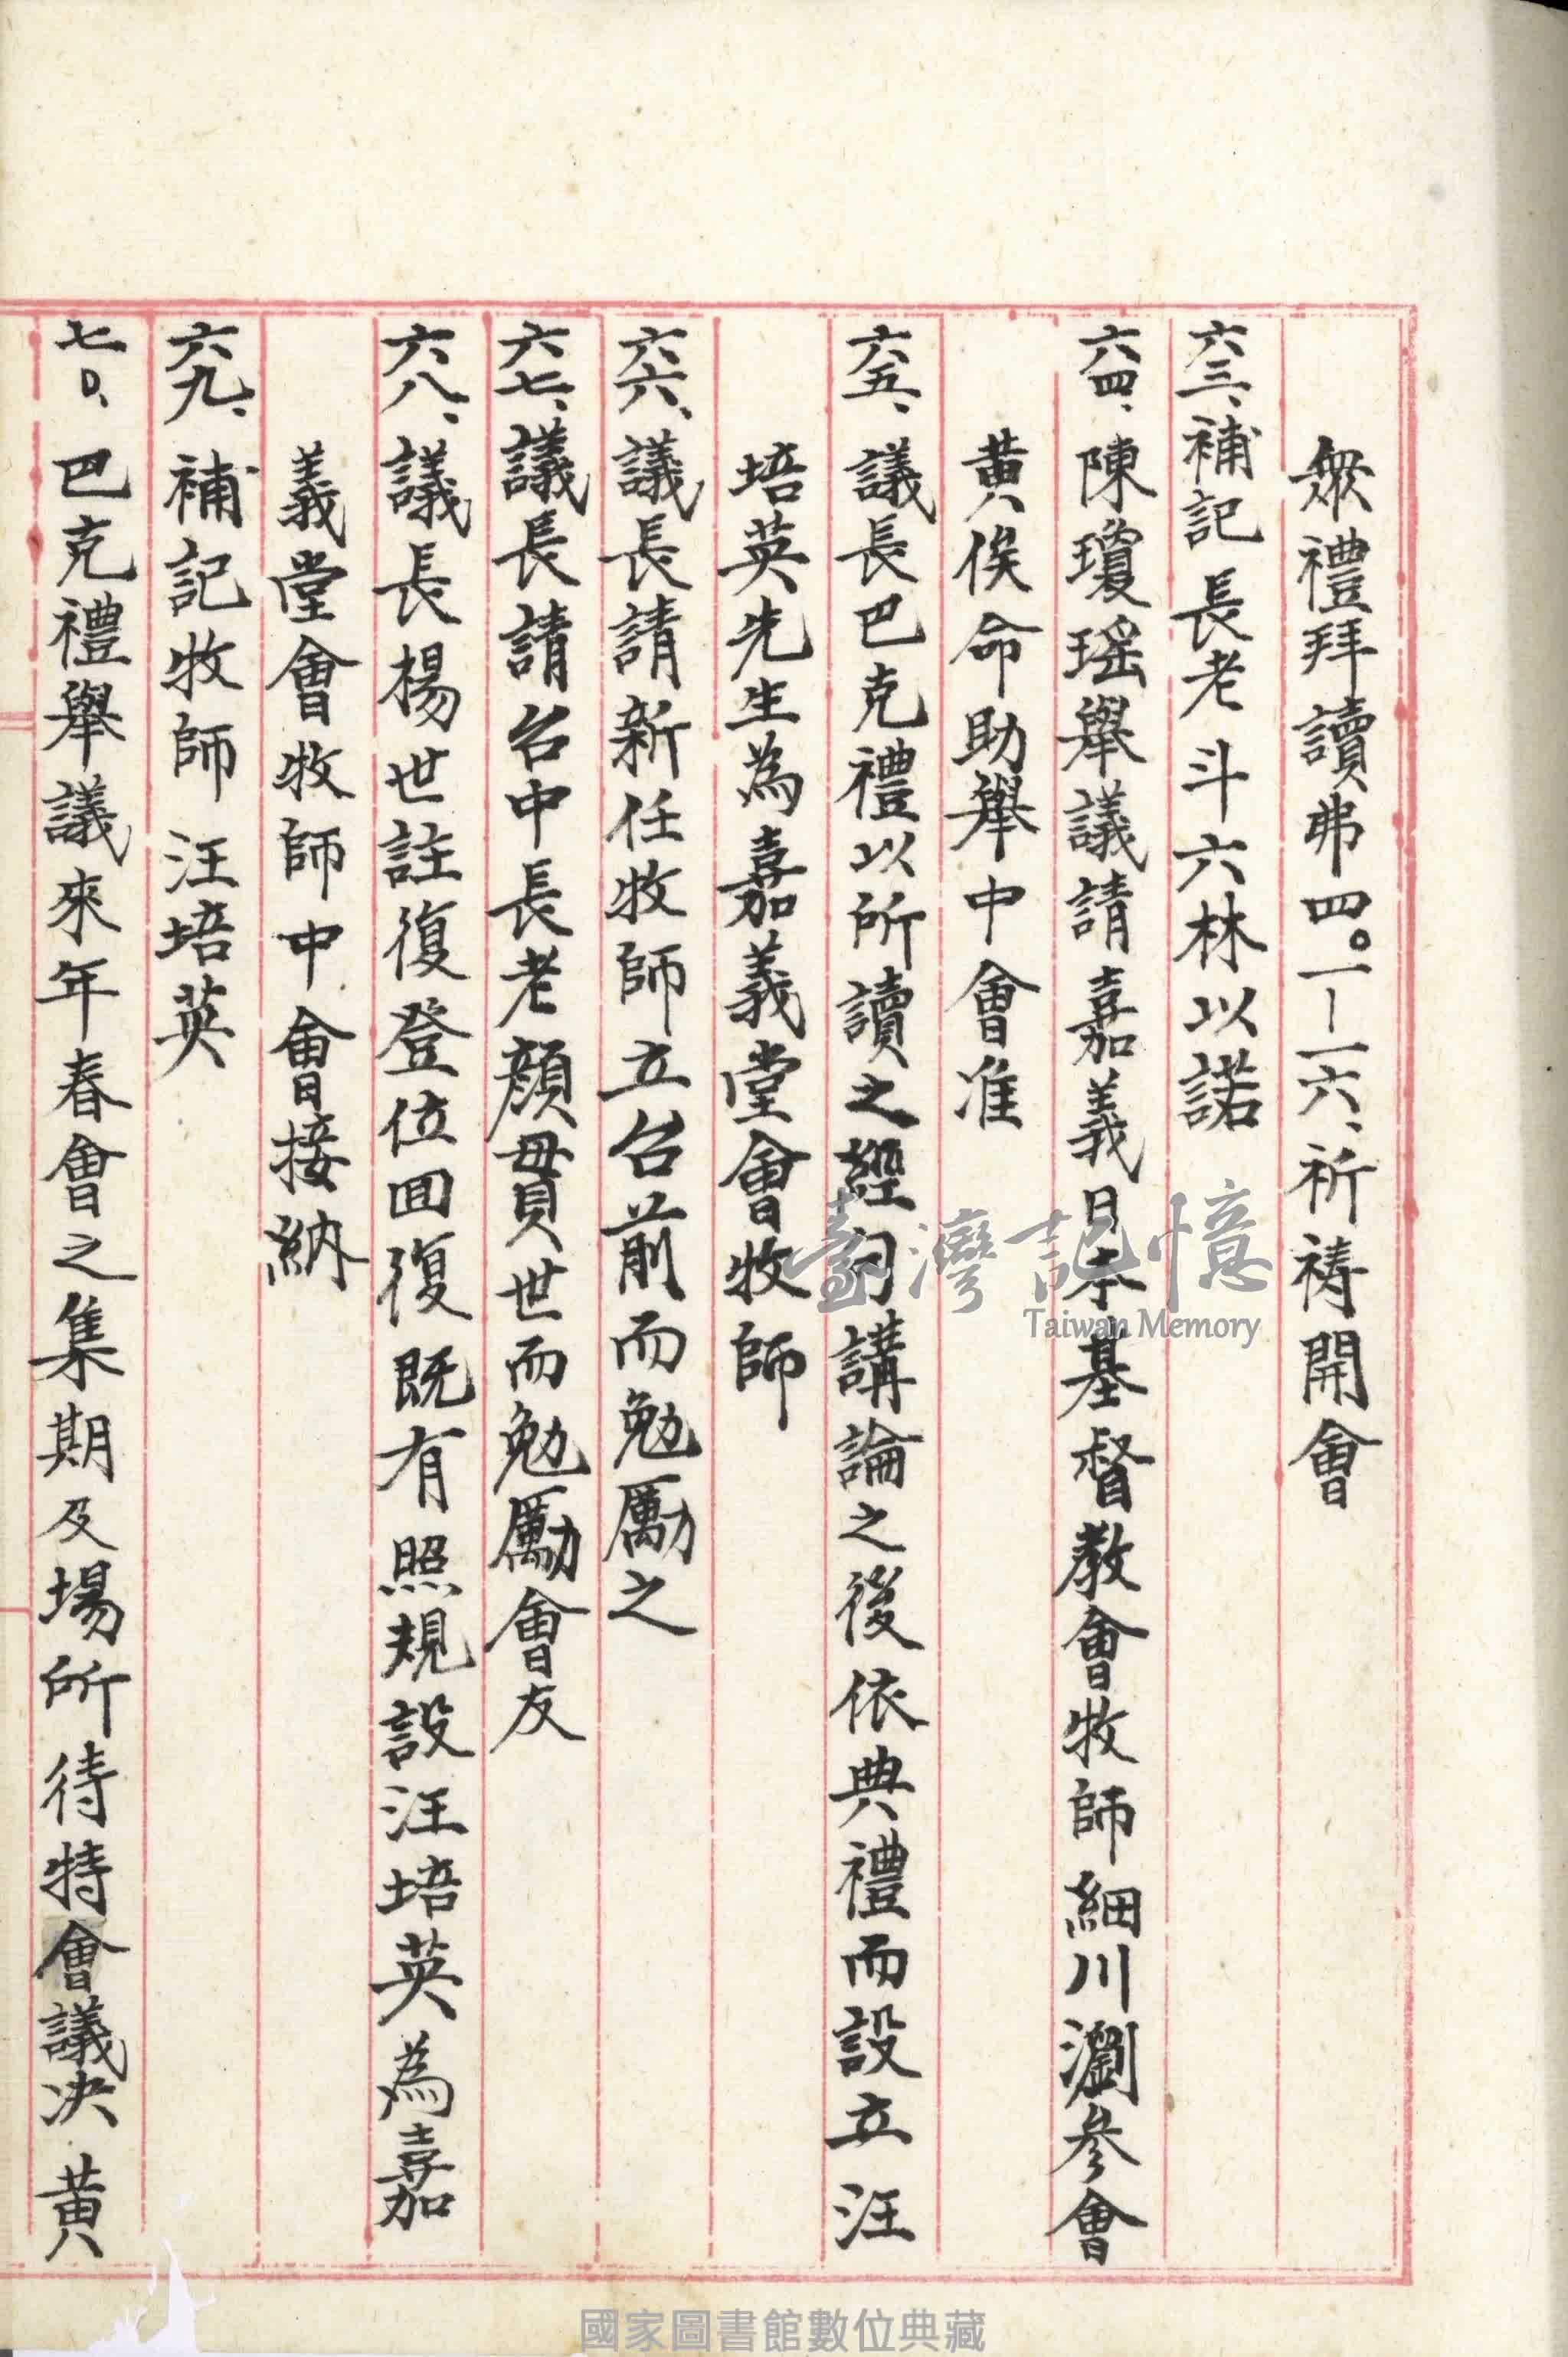 眾禮拜讀弗四。一—一六、祈祷開會
六三、補記長老 斗六林以諾
六四、陳瓊瑤舉議請嘉義日本基督教會牧師細川瀏參會
黄俟命助舉中會准
六五、議長巴克禮以所讀之經詞講論之後依典禮而設立汪
培英先生為嘉義堂會牧師
六六、議長請新任牧師立台前而勉厲之
六七、議長請台中長老顏貫世而勉勵會友
六八、議長楊世註復登位囬復既有照規設汪培英為嘉
義堂會牧師中會接納
六九、補記牧師 汪培英
七0、巴克禮舉議來年春會之集期及場所待特會議决 黄
臺灣記憶
Taiwan Memory
國家圖書館數位典藏